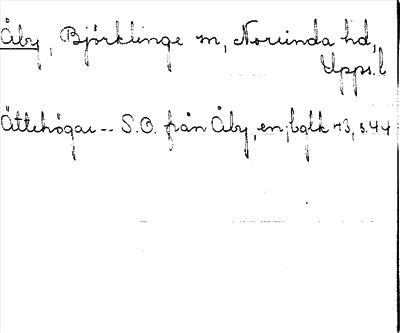 Åby, Björklinge sn, Norunda hd,
Upps. l
Ättehögar -- S.O. från Åby, en, bglk 43, s. 44